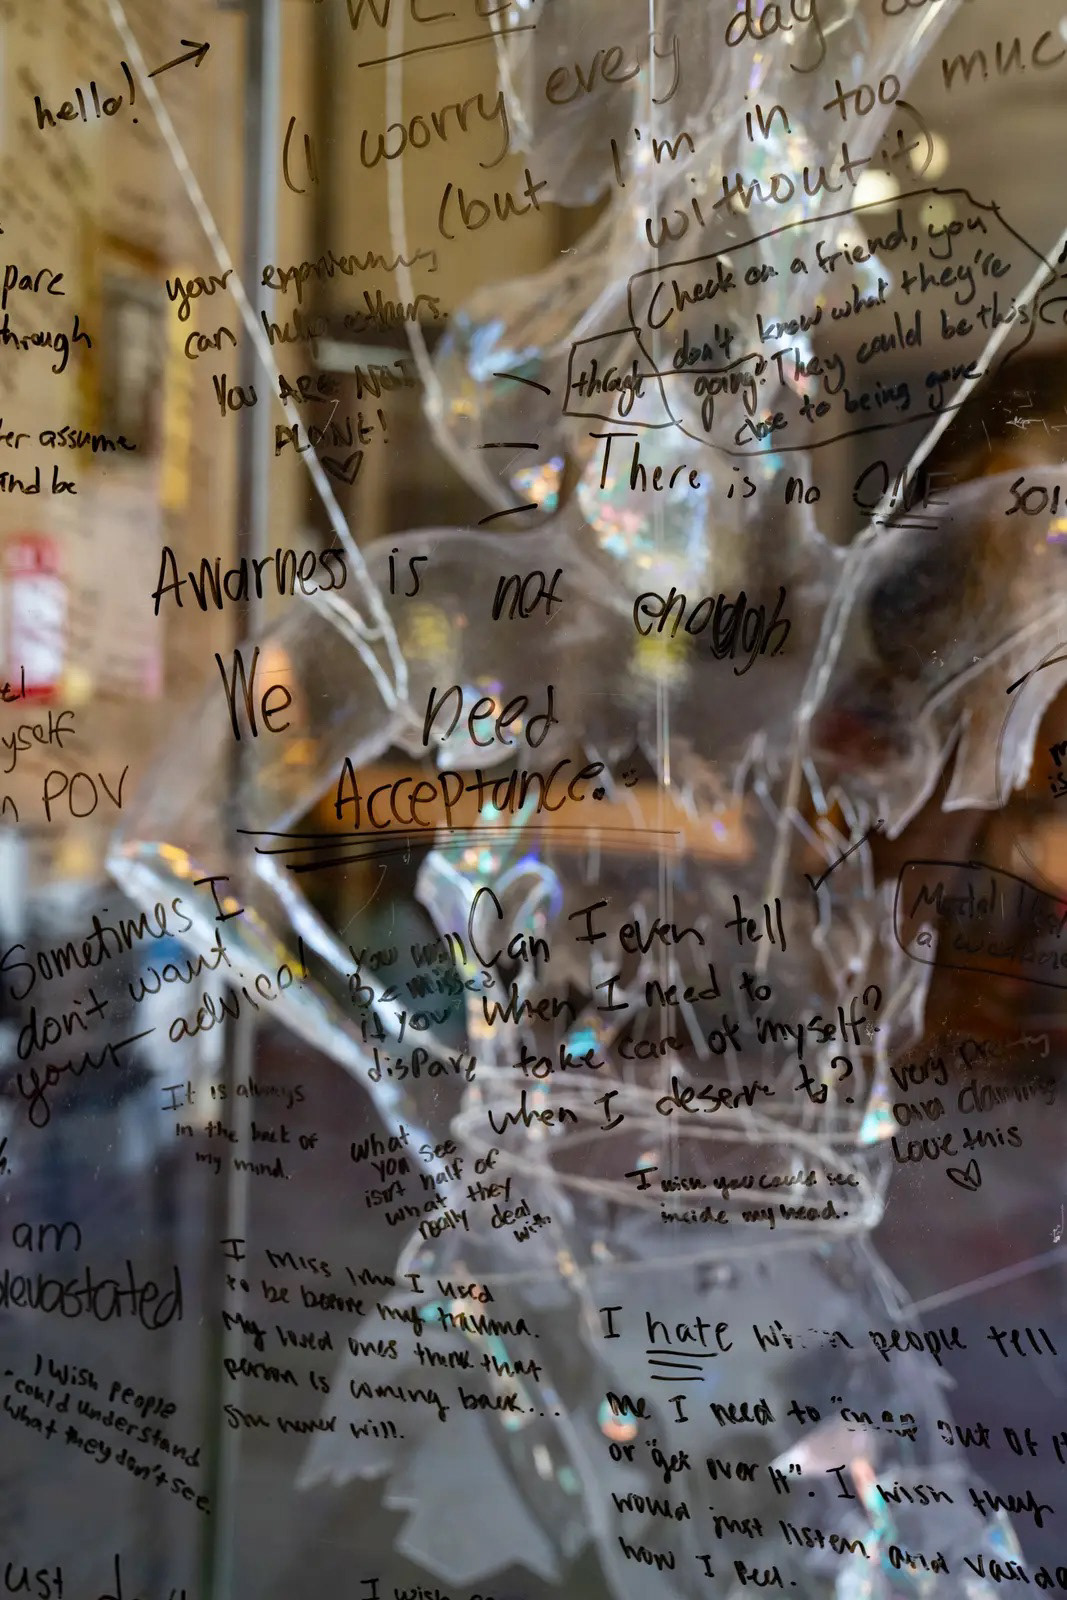 hello!
(I worry every day
(but I'm in too
without it)
pare
through
er assume
and be
your experiences
can help others.
You ARE NOT
ALONE!
Check on a friend, you
don't know what they're
through going. They could be this
close to being gone.
There is no ONE
Awarness is not enough
We need
Acceptance.
yself
POV
Sometimes I
don't want
your advice!
you will
Be missed
if you
dispare
Can I even tell
When I need to
take care of myself?
when I deserve to?
It is always
in the back of
my mind.
what
you see
isn't half of
what they
really deal
with
very pretty
and claming
Love this
I wish you could see
inside my head.
am
devastated
I miss who I used
to be before my trauma.
My loved ones think that
person is coming back...
She never will.
I wish people
could understand
what they don't see.
I hate when people tell
me I need to "snap out of it
or "get over it". I wish they
would just listen and valida
how I feel.
ust
I wish